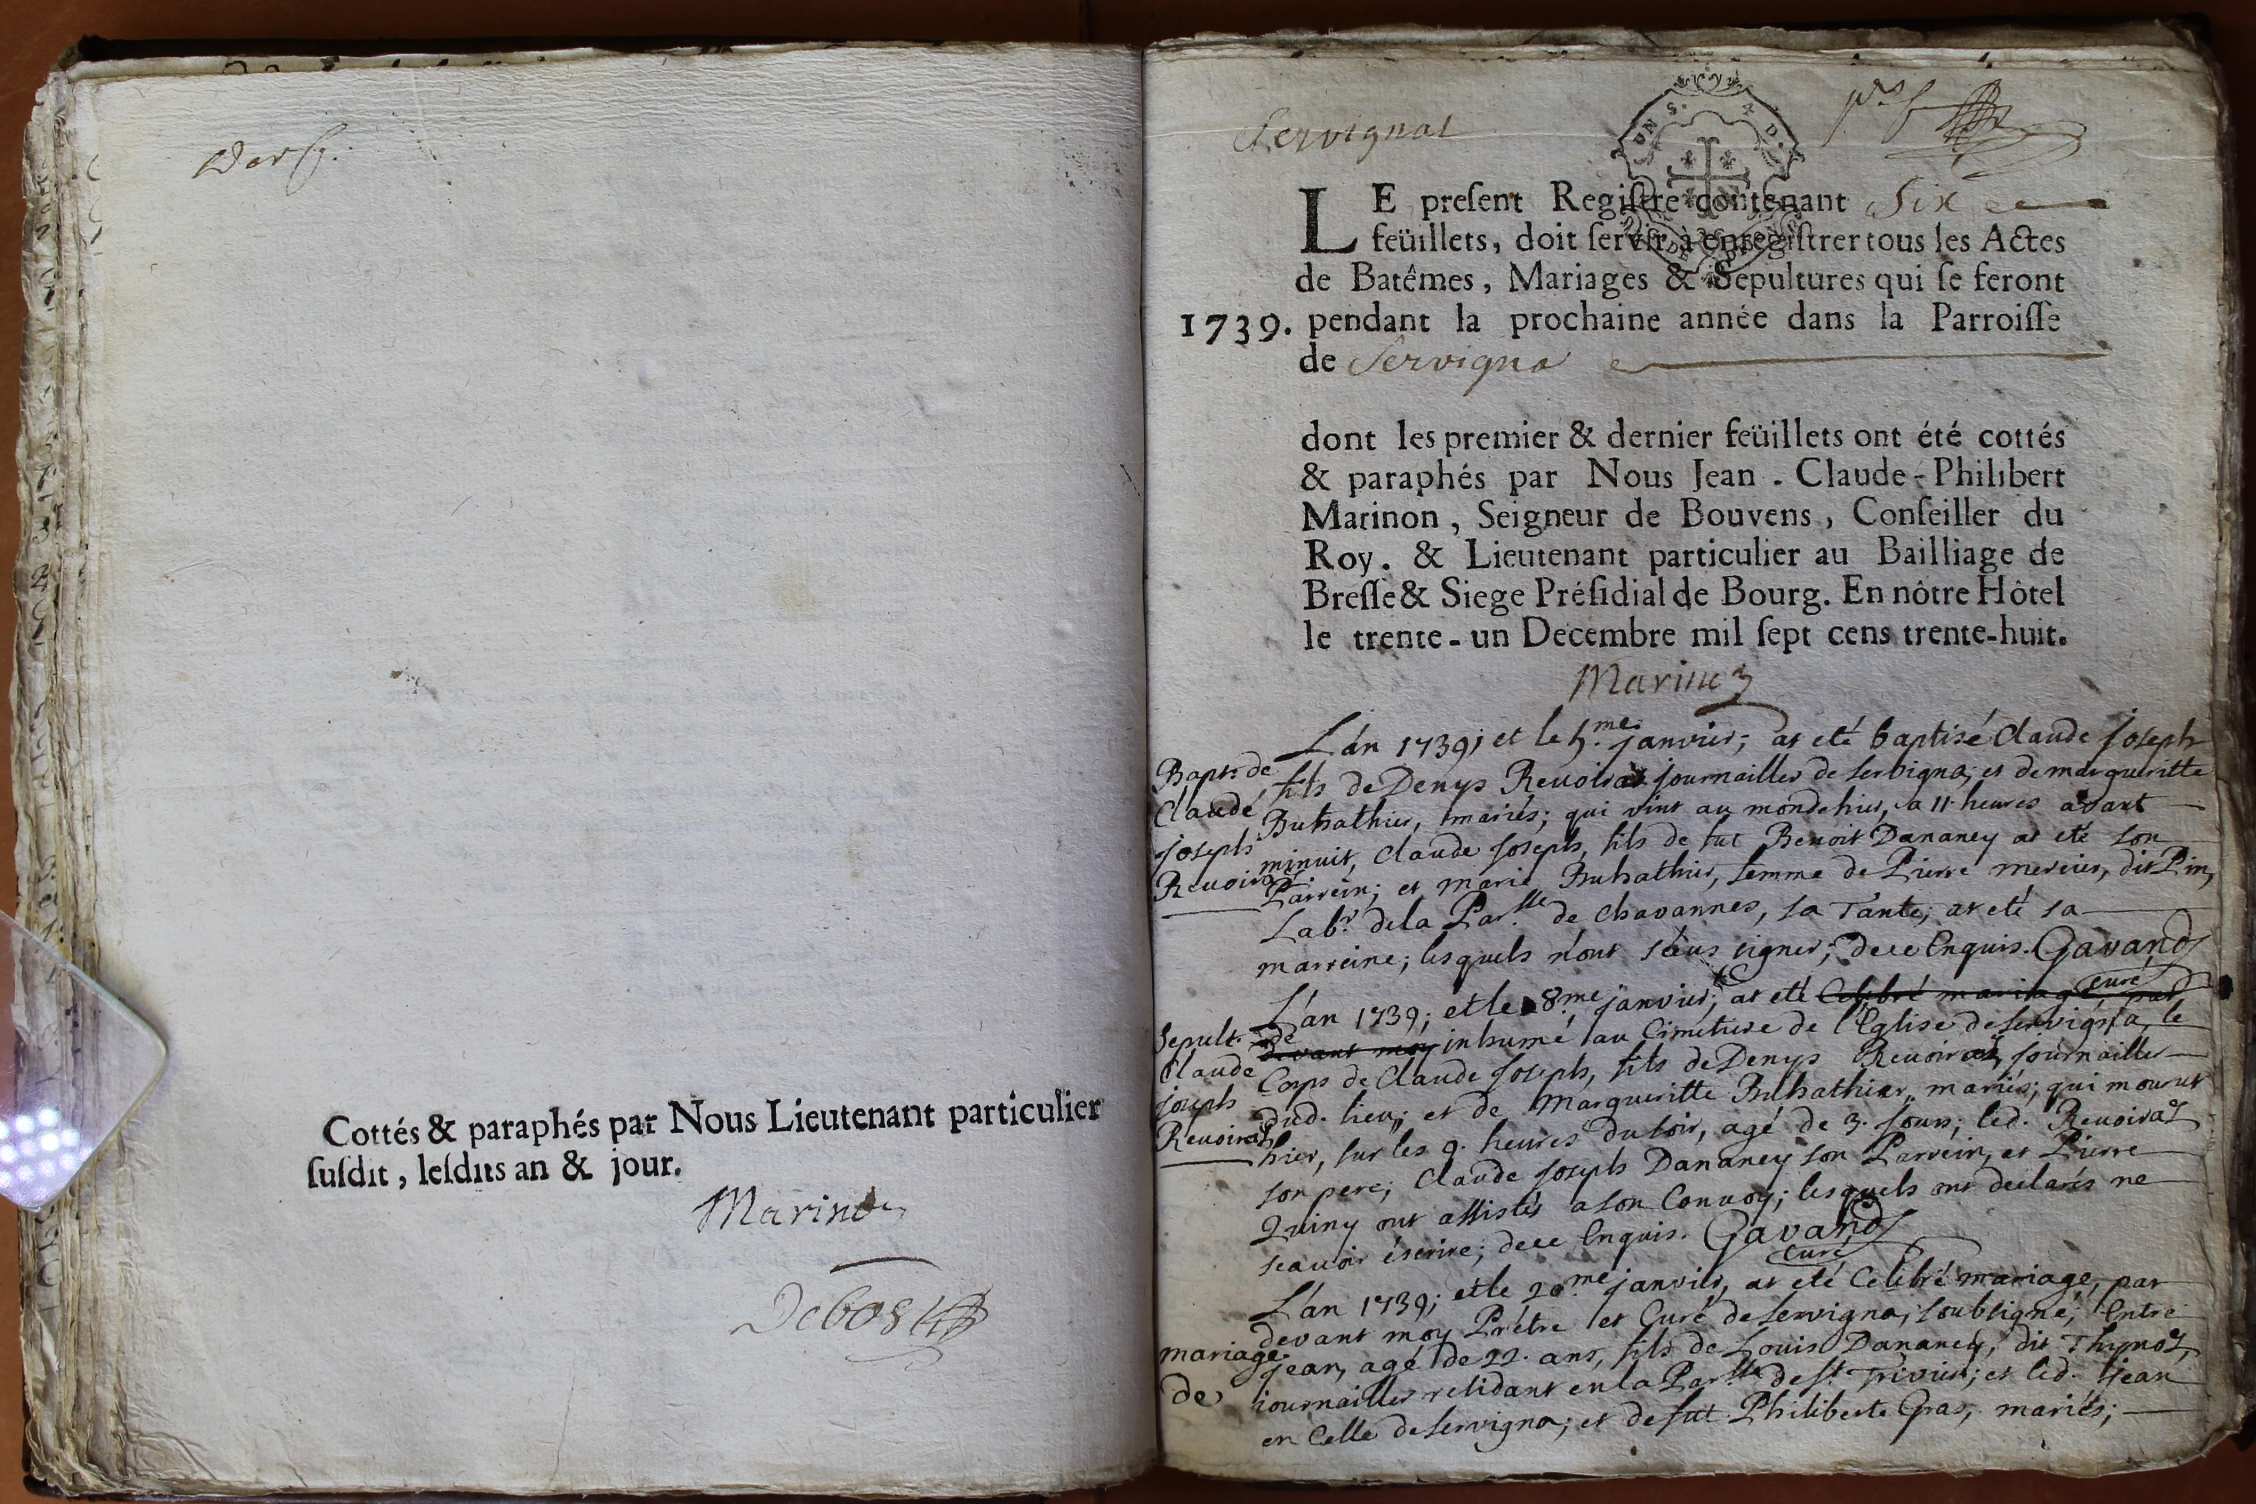 Cottés & paraphés par Nous Lieutenant particulier
ſuſdit, leſdits an & jour.
Marinon
Debost
Servignat
LE preſent Regiſtre contenant Six
feüillets, doit ſervir à enregiſtrer tous les Actes
de Batêmes, Mariages & Sepultures qui ſe feront
1739. pendant la prochaine année dans la Parroiſſe
de Servigna
dont les premier & dernier feüillets ont été cottés
& paraphés par Nous Jean-Claude-Philibert
Marinon, Seigneur de Bouvens, Conſeiller du
Roy. & Lieutenant particulier au Bailliage de
Breſſe & Siege Préſidial de Bourg. En nôtre Hôtel
le trente-un Decembre mil ſept cens trente-huit.
Marinon
L'an 1739; et le 5.me janvier; at eté baptisé Claude Joseph
Bapt. de
Claude
Joseph
Revoirat
fils de Denys Revoirat journaillier de servigna; et de margueritte
Buhathier, mariés; qui vint au monde hier, a 11. heures avant
minuit, Claude Joseph, fils de fut Benoit Dananey at eté son
Parrein; et marie Buhathier, femme de Pierre mercier, dit Pin,
Lab.r de la Par.sse de Chavannes, sa Tante; at eté sa
marreine; lesquels n'ont sceus signer; de ce Enquis. Gavand
curé
L'an 1739; et le 8.me janvier; at eté Celebré mariage par
Sepult. de
Claude
joseph
Revoirat
devant moy inhumé au Cimetiere de l'Eglise de servigna, le
Corps de Claude Joseph, fils de Denys Revoirat, journaillier
dud. lieu; et de Margueritte Buhathier, mariés; qui mourut
hier, sur les 9. heures du soir, agé de 3. Jours; led. Revoirat
son pere; Claude Joseph Dananey son Parrein, et Pierre
Quiny ont assistés a son Convoy; lesquels ont declarés ne
sçavoir éscrire; de ce Enquis. Gavand
curé
L'an 1739; et le 20.me janvier, at eté Celebré mariage, par
devant moy Prétre et Curé de servigna, soubsigné; Entre
mariage
de
jean, agé de 22. ans, fils de Louis Dananey, dit Thynot,
journaillier residant en la Par.sse de S.t Trivier; et led. jean
en Celle de servigna; et de fut Philiberte Gras, mariés;